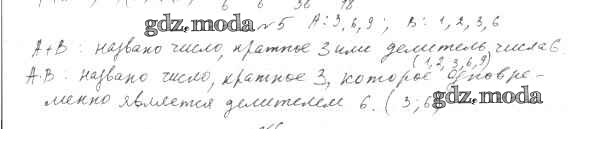 gdz.moda №5 A: 3, 6, 9; B: 1, 2, 3, 6
A+B: названо число, кратное 3 или делитель числа 6.
(1, 2, 3, 6, 9)
A·B: названо число, кратное 3, которое одновре-
менно является делителем 6. (3; 6) gdz.moda